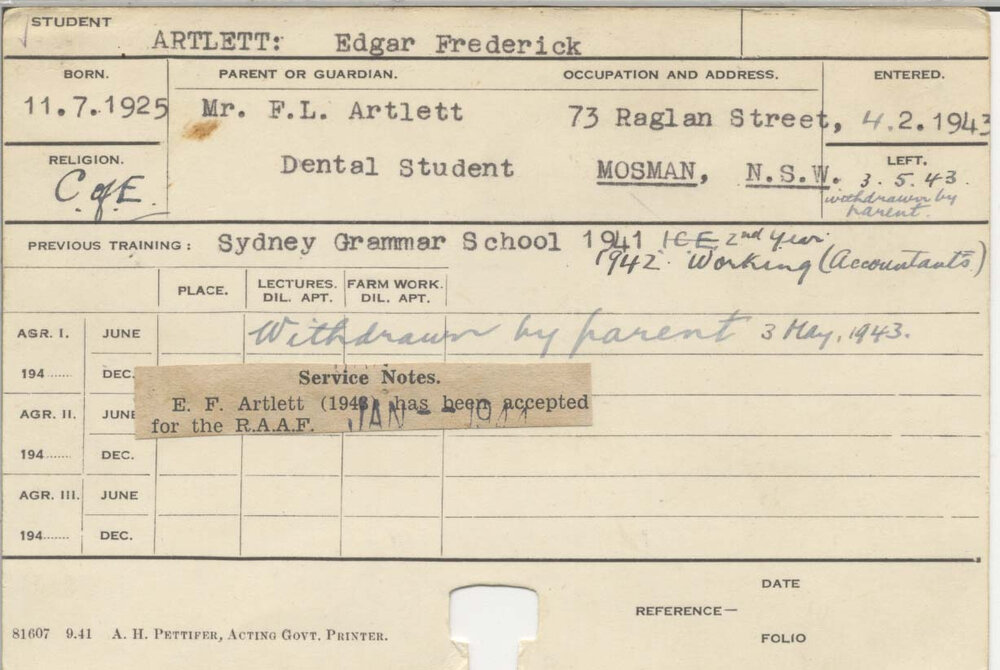 STUDENT
ARTLETT: Edgar Frederick
BORN. PARENT OR GUARDIAN. OCCUPATION AND ADDRESS. ENTERED.
11.7.1925 Mr. F.L. Artlett 73 Raglan Street, 4.2.1943
RELIGION. Dental Student MOSMAN, N.S.W. LEFT.
C of E. 3.5.43.
withdrawn by
parent.
PREVIOUS TRAINING: Sydney Grammar School 1941 ICE 2nd Year.
1942. Working (Accountants)
PLACE. LECTURES. DIL. APT. FARM WORK. DIL. APT.
AGR. I. JUNE Withdrawn by parent 3 May, 1943.
194...... DEC.
Service Notes.
E. F. Artlett (1943) has been accepted
for the R.A.A.F. JAN - 1944
AGR. II. JUNE
194...... DEC.
AGR. III. JUNE
194...... DEC.
DATE
REFERENCE—
FOLIO
81607 9.41 A. H. PETTIFER, ACTING GOVT. PRINTER.